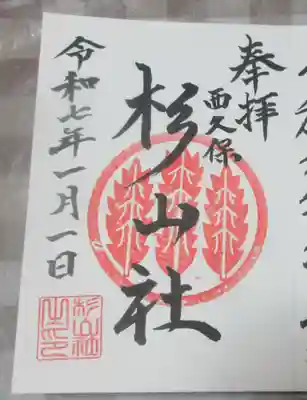 奉拝
西久保
杉山社
令和七年一月一日
杉山社
之印